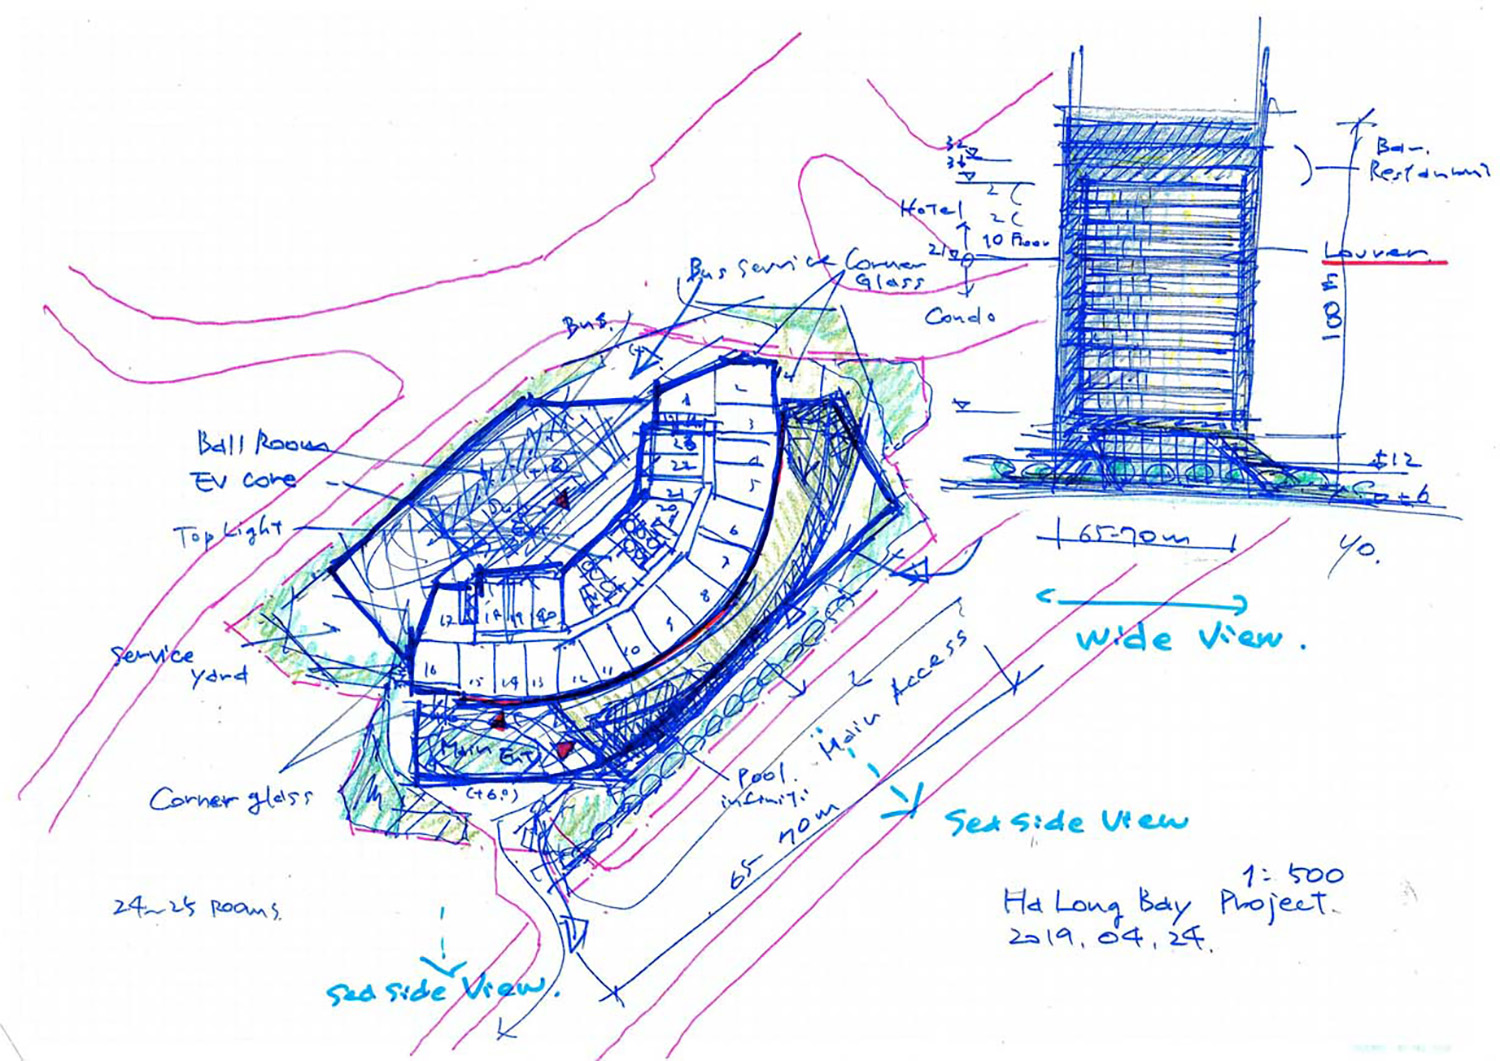 Bar.
Restaurant
32
36
2
Hotel
2
10 Floor
21
Louver
Condo
100 m
Bus service
Corner
Glass
Bus.
Ball Room
EV core
Top Light
12
+6
65-70m
Wide View.
Service
yard
1
2
3
4
5
6
7
8
9
10
11
12
13
14
15
16
17
18
19
20
21
22
23
Main Ent
(+6.0)
Corner glass
Pool.
Main Access
65 70m
Sea side View
24~25 rooms.
Sea side View.
1:500
Ha Long Bay Project.
2019.04.24.